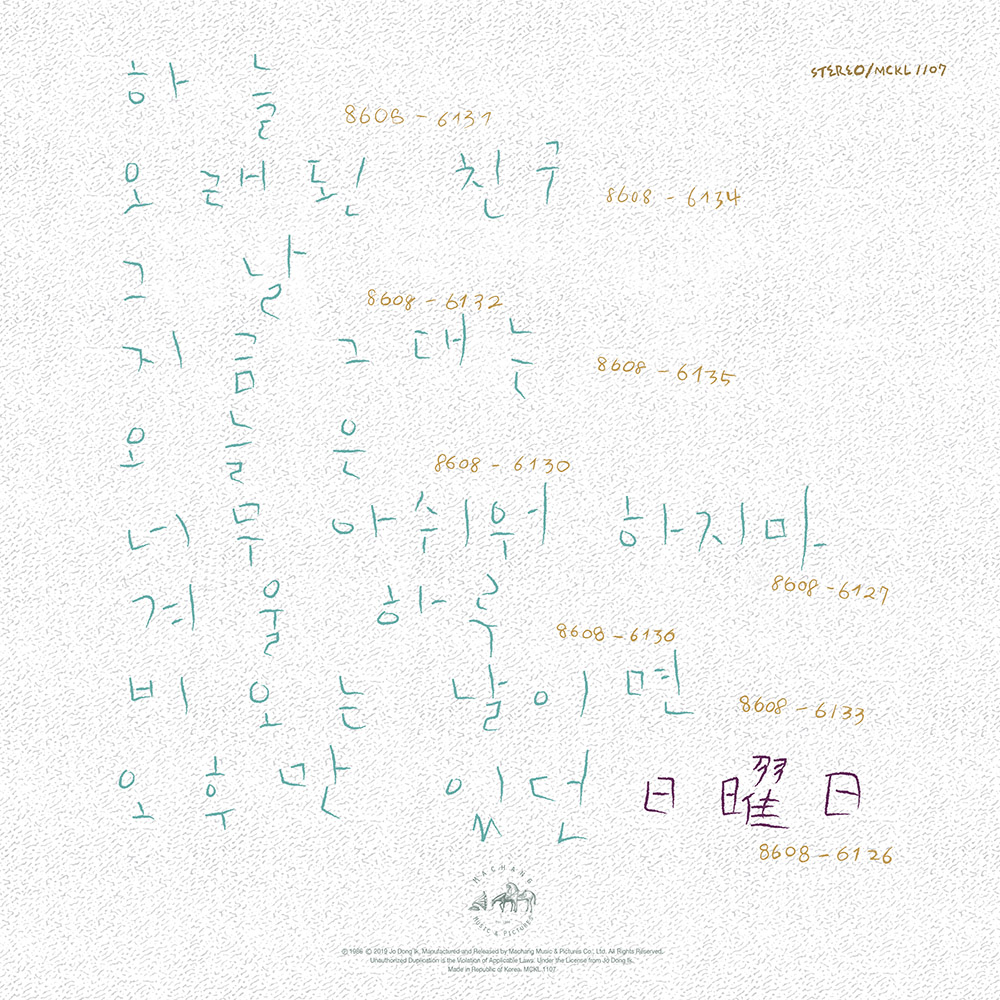 STEREO/MCKL 1107
하늘 8608-6131
오래된 친구 8608-6134
그날 8608-6132
지금 그대는 8608-6135
오늘은 8608-6130
너무 아쉬워 하지마 8608-6127
겨울 하루 8608-6136
비오는 날이면 8608-6133
오후만 있던 日曜日 8608-6126
MACHANG
MUSIC & PICTURES
℗ 1986 © 2019 Jo Dong Ik, Manufactured and Released by Machang Music & Pictures Co., Ltd. All Rights Reserved.
Unauthorized Duplication is the Violation of Applicable Laws. Under the License from Jo Dong Ik.
Made in Republic of Korea. MCKL 1107